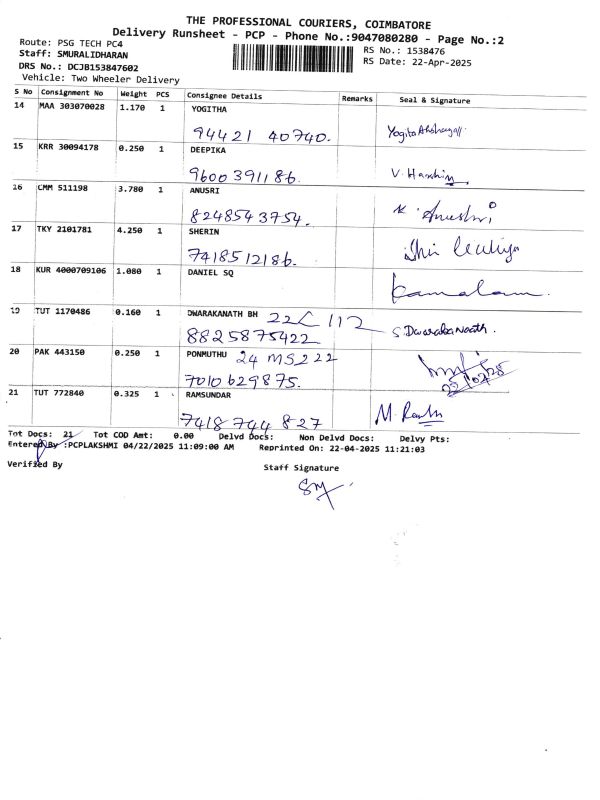 THE PROFESSIONAL COURIERS, COIMBATORE
Delivery Runsheet - PCP - Phone No.:9047080280 - Page No.:2
Route: PSG TECH PC4
RS No.: 1538476
Staff: SMURALIDHARAN
RS Date: 22-Apr-2025
DRS No.: DCJB153847602
Vehicle: Two Wheeler Delivery
S No Consignment No Weight PCS Consignee Details Remarks Seal & Signature
14 MAA 303070028 1.170 1 YOGITHA
94421 40740.
15 KRR 30094178 0.250 1 DEEPIKA
9600391186. V. Harshin
16 CMM 511198 3.780 1 ANUSRI
8248543754. K. Anushri
17 TKY 2101781 4.250 1 SHERIN
7418512186.
18 KUR 4000709106 1.080 1 DANIEL SQ
Kamalam.
19 TUT 1170486 0.160 1 DWARAKANATH BH 22L 112
8825875422 S. Dwarakanaath.
20 PAK 443150 0.250 1 PONMUTHU 24 MS222
7010629875.
21 TUT 772840 0.325 1 RAMSUNDAR
7418744827
Tot Docs: 21 Tot COD Amt: 0.00 Delvd Docs: Non Delvd Docs: Delvy Pts:
Entered By :PCPLAKSHMI 04/22/2025 11:09:00 AM Reprinted On: 22-04-2025 11:21:03
Verified By
Staff Signature